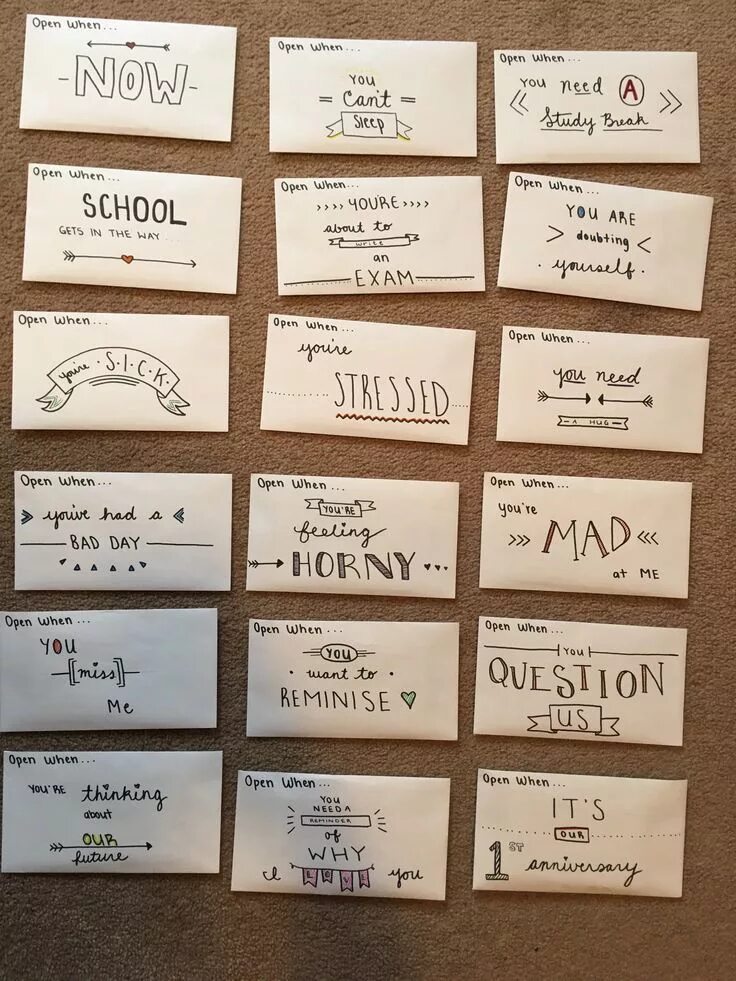 Open When...
- NOW -
Open When...
You
= Can't =
Sleep
Open When...
you need A
<< >>
Study Break
Open When...
SCHOOL
GETS IN THE WAY...
Open When...
>>>> YOU'RE >>>>
about to
write
an
EXAM
Open When...
YOU ARE
> doubting <
· yourself ·
Open When...
you're · S·I·C·K·
Open When...
you're
STRESSED
Open When...
you need
- A HUG -
Open When...
» you've had a «
BAD DAY
Open When...
YOU'RE
feeling
HORNY
Open When...
you're
>>> MAD <<<
at ME
Open When...
YOU
[miss]
Me
Open When...
YOU
· want to ·
REMINISE
Open When...
YOU
QUESTION
US
Open When...
YOU'RE thinking
about
OUR
future
Open When...
YOU
NEED A
REMINDER
of
WHY
I LOVE you
Open When...
IT'S
OUR
1ST anniversary